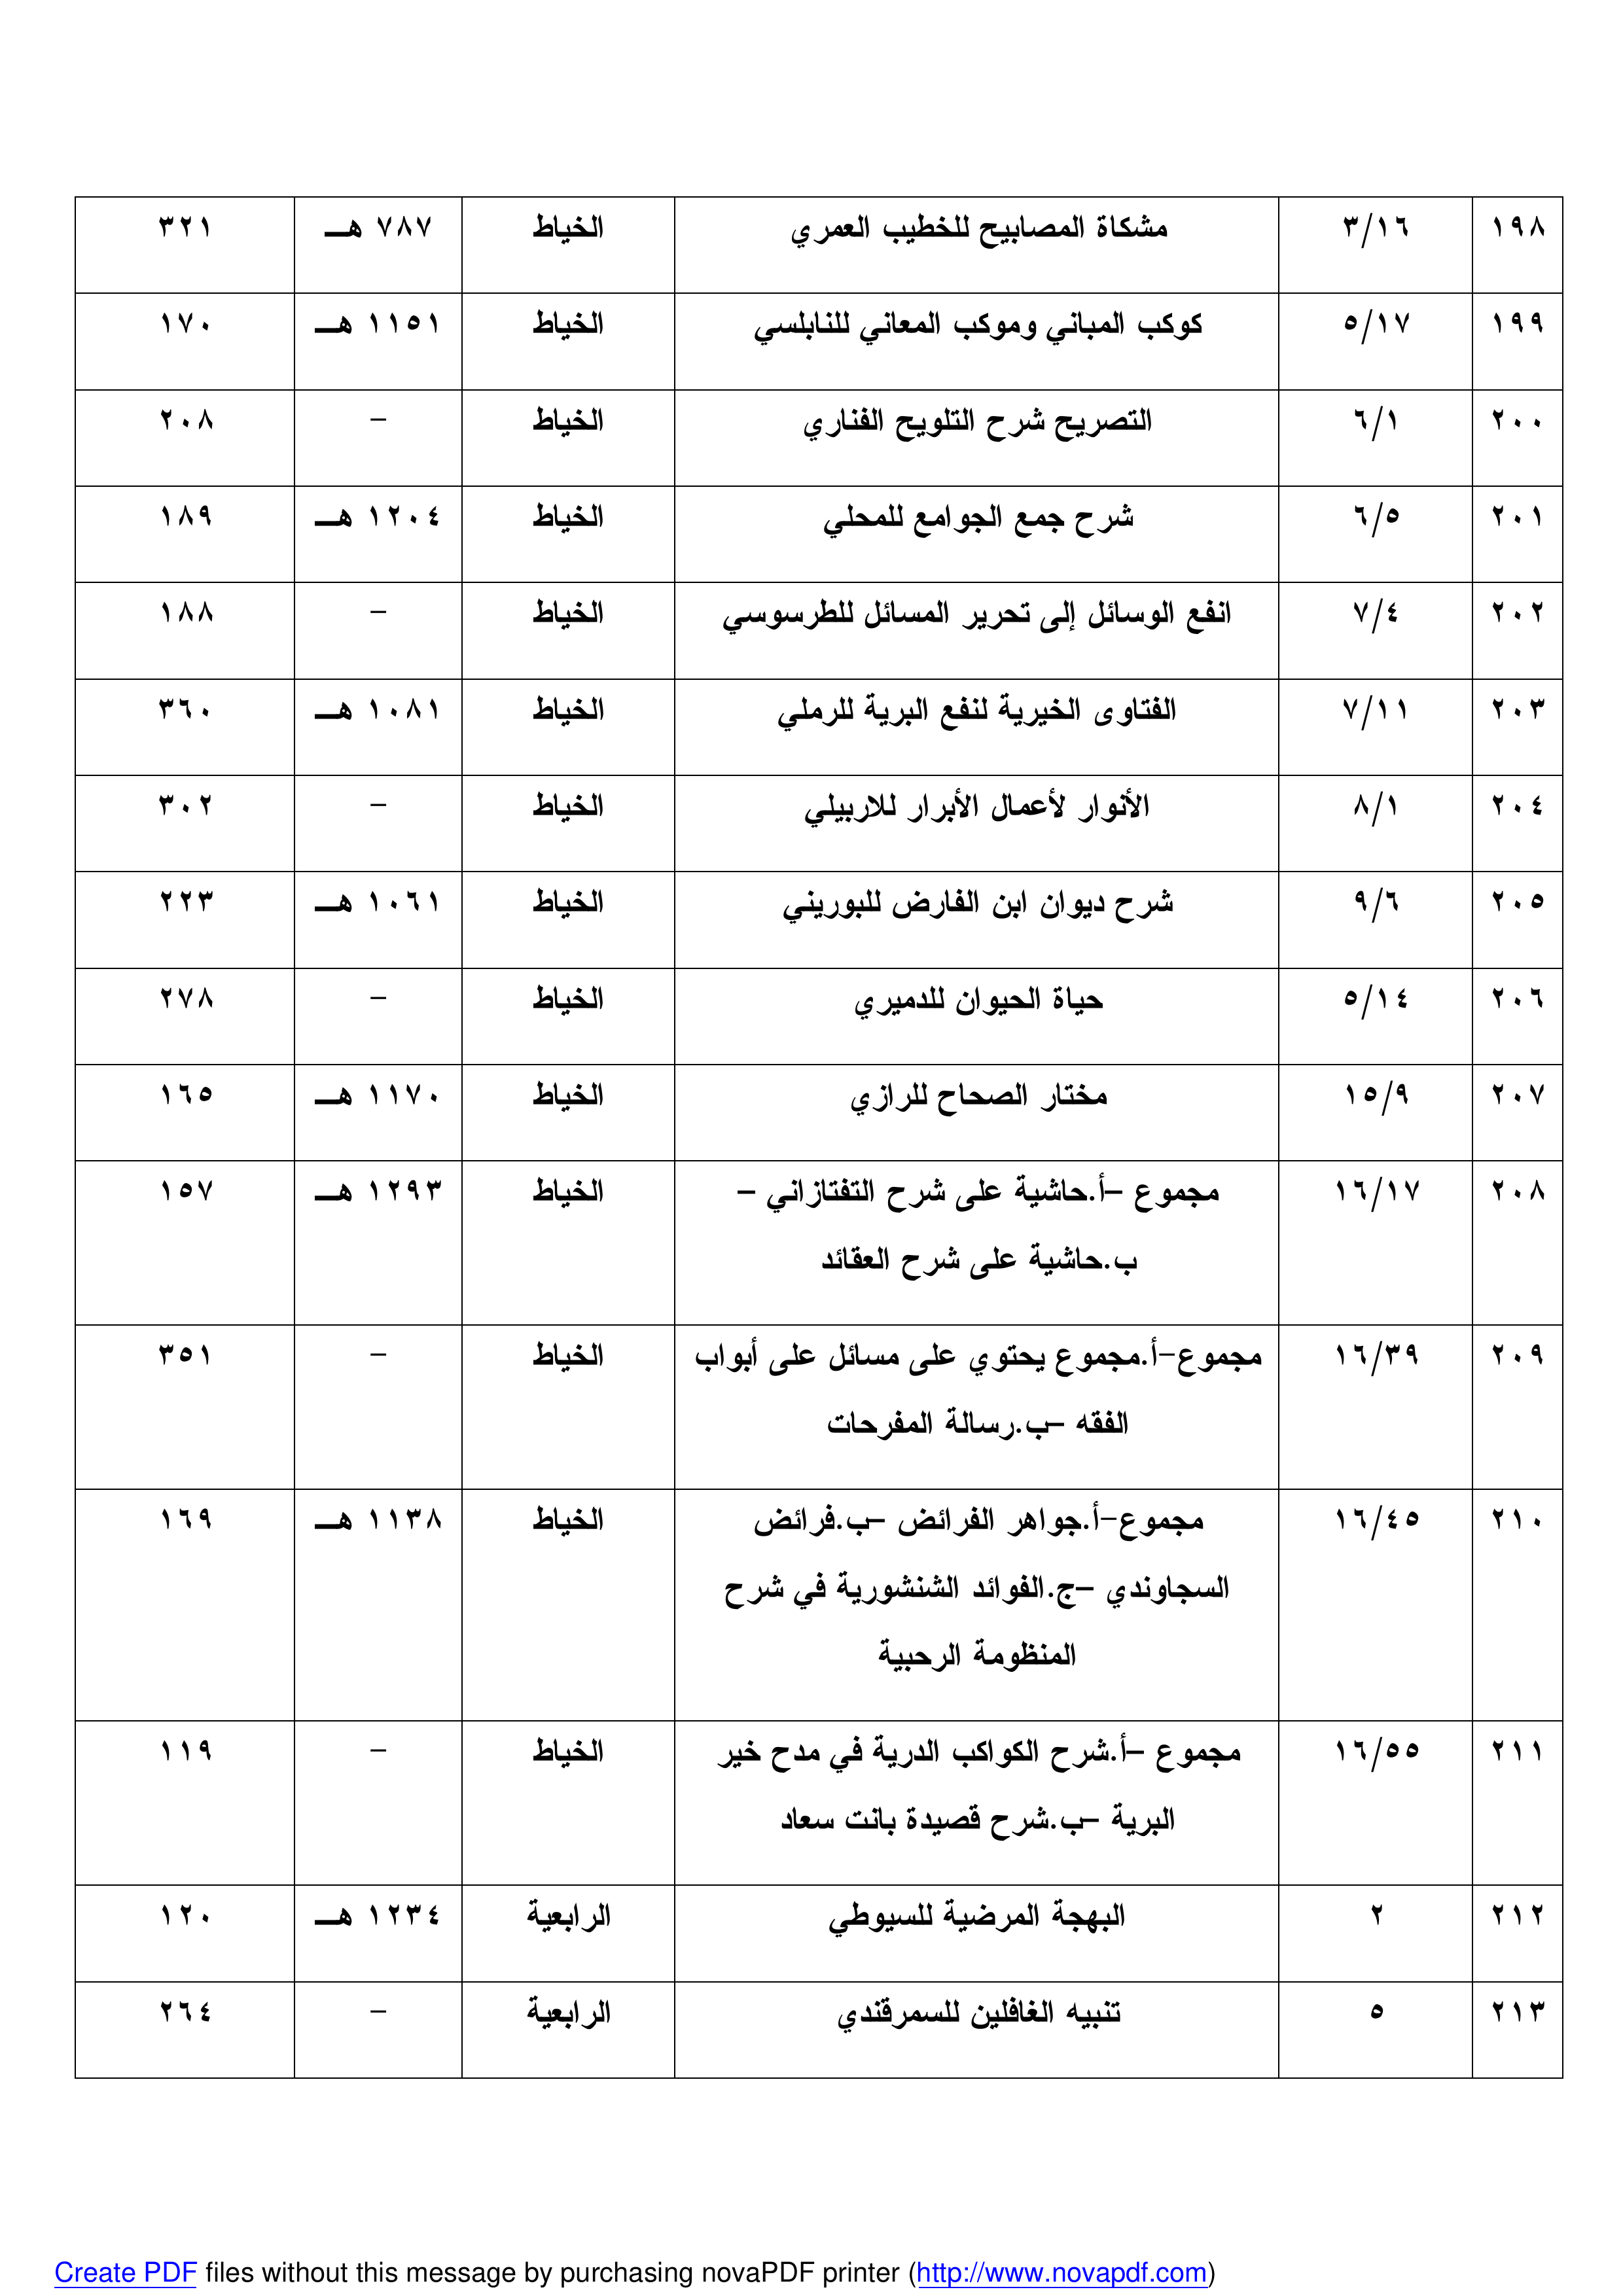 ١٩٨ ٣/١٦ مشكاة المصابيح للخطيب العمري الخياط ٧٨٧ هـ ٣٢١
١٩٩ ٥/١٧ كوكب المباني وموكب المعاني للنابلسي الخياط ١١٥١ هـ ١٧٠
٢٠٠ ٦/١ التصريح شرح التلويح الفناري الخياط – ٢٠٨
٢٠١ ٦/٥ شرح جمع الجوامع للمحلي الخياط ١٢٠٤ هـ ١٨٩
٢٠٢ ٧/٤ انفع الوسائل إلى تحرير المسائل للطرسوسي الخياط – ١٨٨
٢٠٣ ٧/١١ الفتاوى الخيرية لنفع البرية للرملي الخياط ١٠٨١ هـ ٣٦٠
٢٠٤ ٨/١ الأنوار لأعمال الأبرار للاربيلي الخياط – ٣٠٢
٢٠٥ ٩/٦ شرح ديوان ابن الفارض للبوريني الخياط ١٠٦١ هـ ٢٢٣
٢٠٦ ٥/١٤ حياة الحيوان للدميري الخياط – ٢٧٨
٢٠٧ ١٥/٩ مختار الصحاح للرازي الخياط ١١٧٠ هـ ١٦٥
٢٠٨ ١٦/١٧ مجموع –أ.حاشية على شرح التفتازاني – الخياط ١٢٩٣ هـ ١٥٧
ب.حاشية على شرح العقائد
٢٠٩ ١٦/٣٩ مجموع-أ.مجموع يحتوي على مسائل على أبواب الخياط – ٣٥١
الفقه –ب.رسالة المفرحات
٢١٠ ١٦/٤٥ مجموع-أ.جواهر الفرائض –ب.فرائض الخياط ١١٣٨ هـ ١٦٩
السجاوندي –ج.الفوائد الشنشورية في شرح
المنظومة الرحبية
٢١١ ١٦/٥٥ مجموع –أ.شرح الكواكب الدرية في مدح خير الخياط – ١١٩
البرية –ب.شرح قصيدة بانت سعاد
٢١٢ ٢ البهجة المرضية للسيوطي الرابعية ١٢٣٤ هـ ١٢٠
٢١٣ ٥ تنبيه الغافلين للسمرقندي الرابعية – ٢٦٤
Create PDF files without this message by purchasing novaPDF printer (http://www.novapdf.com)